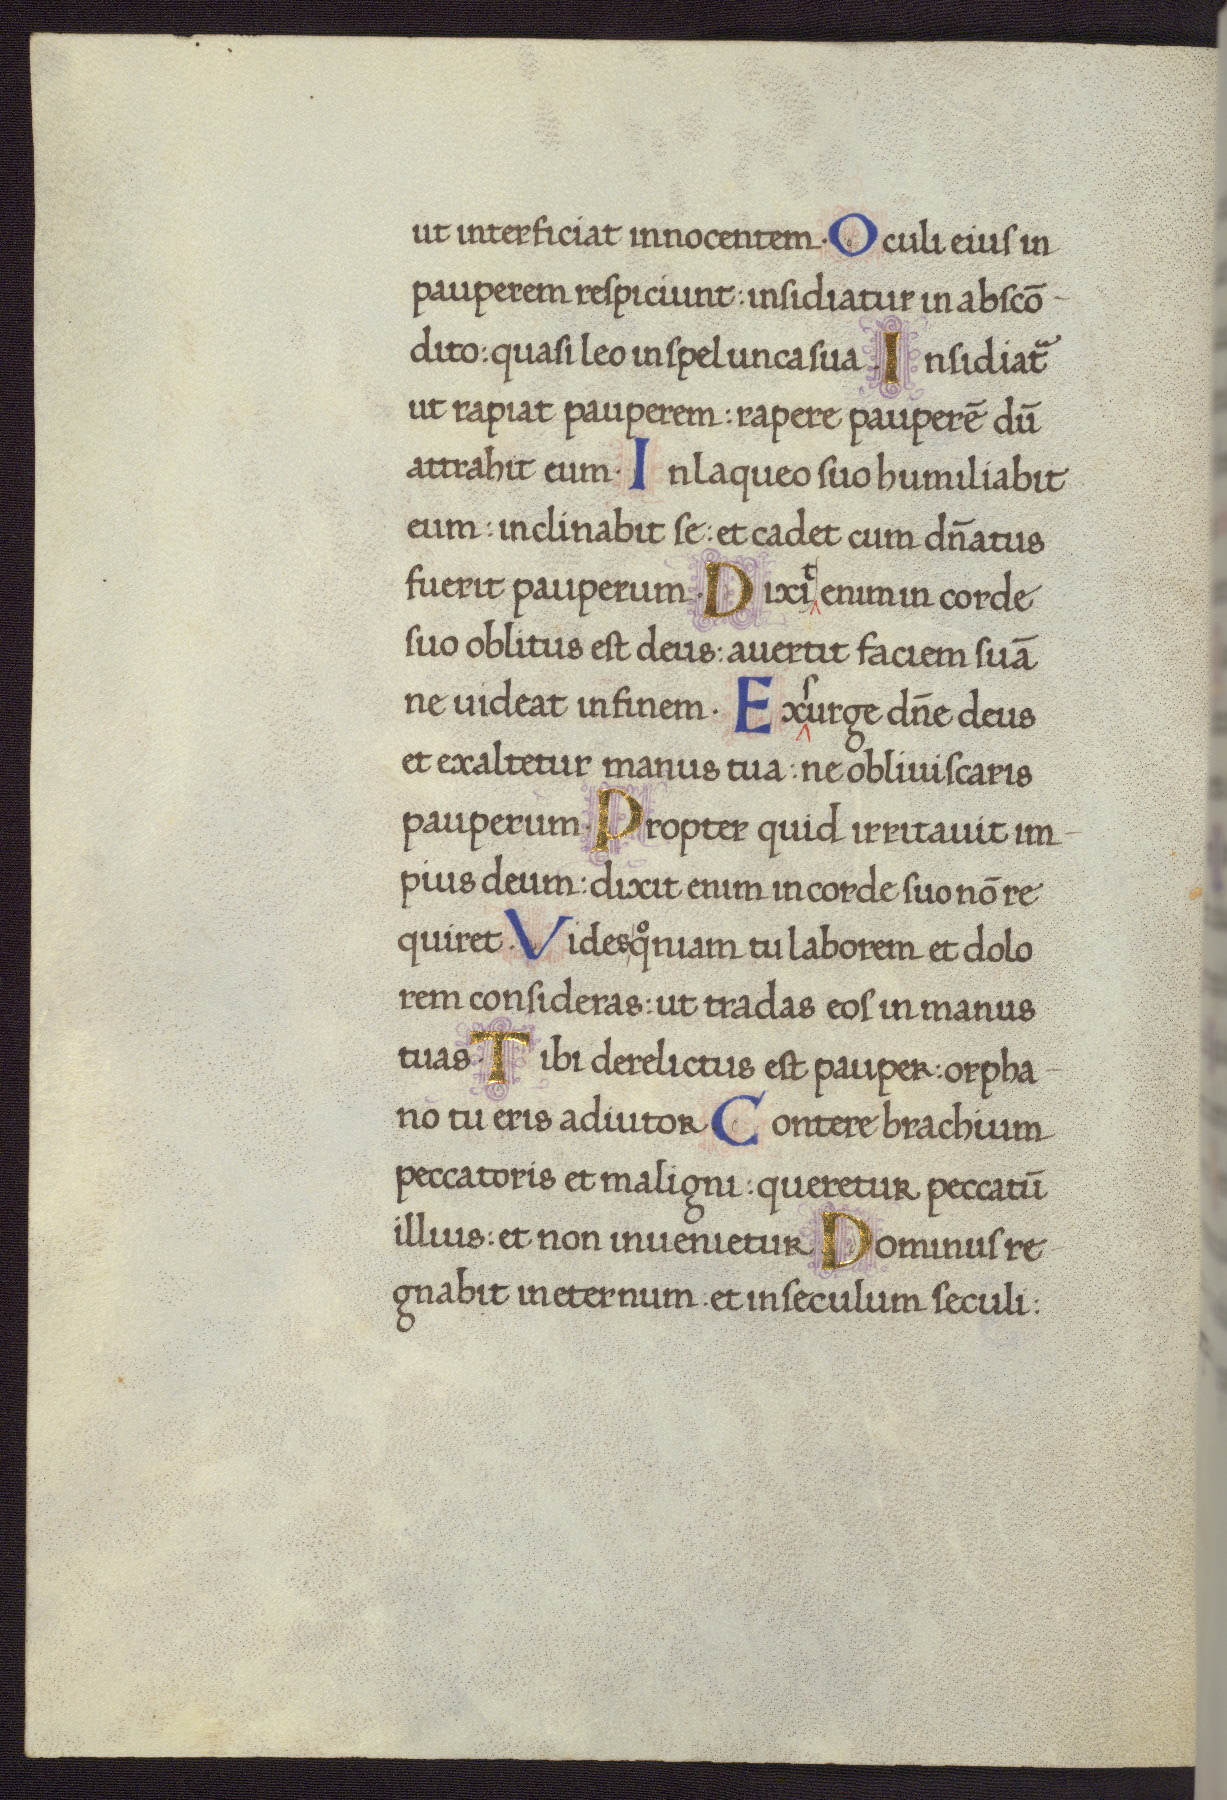 ut interficiat innocentem. Oculi eiuſ in
pauperem reſpiciunt: inſidiatur in abſcō-
dito: quaſi leo in ſpelunca ſua. Inſidiatᷓ
ut rapiat pauperem: rapere pauperē dū
attrahit eum. In laqueo ſuo humiliabit
eum: inclinabit ſe: et cadet cum dn̄atus
fuerit pauperum. Dixit enim in corde
ſuo oblitus eſt deus: auertit faciem ſuā
ne uideat in finem. Exſurge dn̄e deus
et exaltetur manus tua: ne obliuiſcaris
pauperum. Propter quid irritauit im-
pius deum: dixit enim in corde ſuo nō re
quiret. Vides qͦniam tu laborem et dolo
rem conſideras: ut tradas eoſ in manus
tuas. Tibi derelictus eſt pauper: orpha-
no tu eris adiutor Contere brachium
peccatoris et maligni: queretur peccatū
illius: et non inuenietur Dominuſ re-
gnabit in eternum et in ſeculum ſeculi: